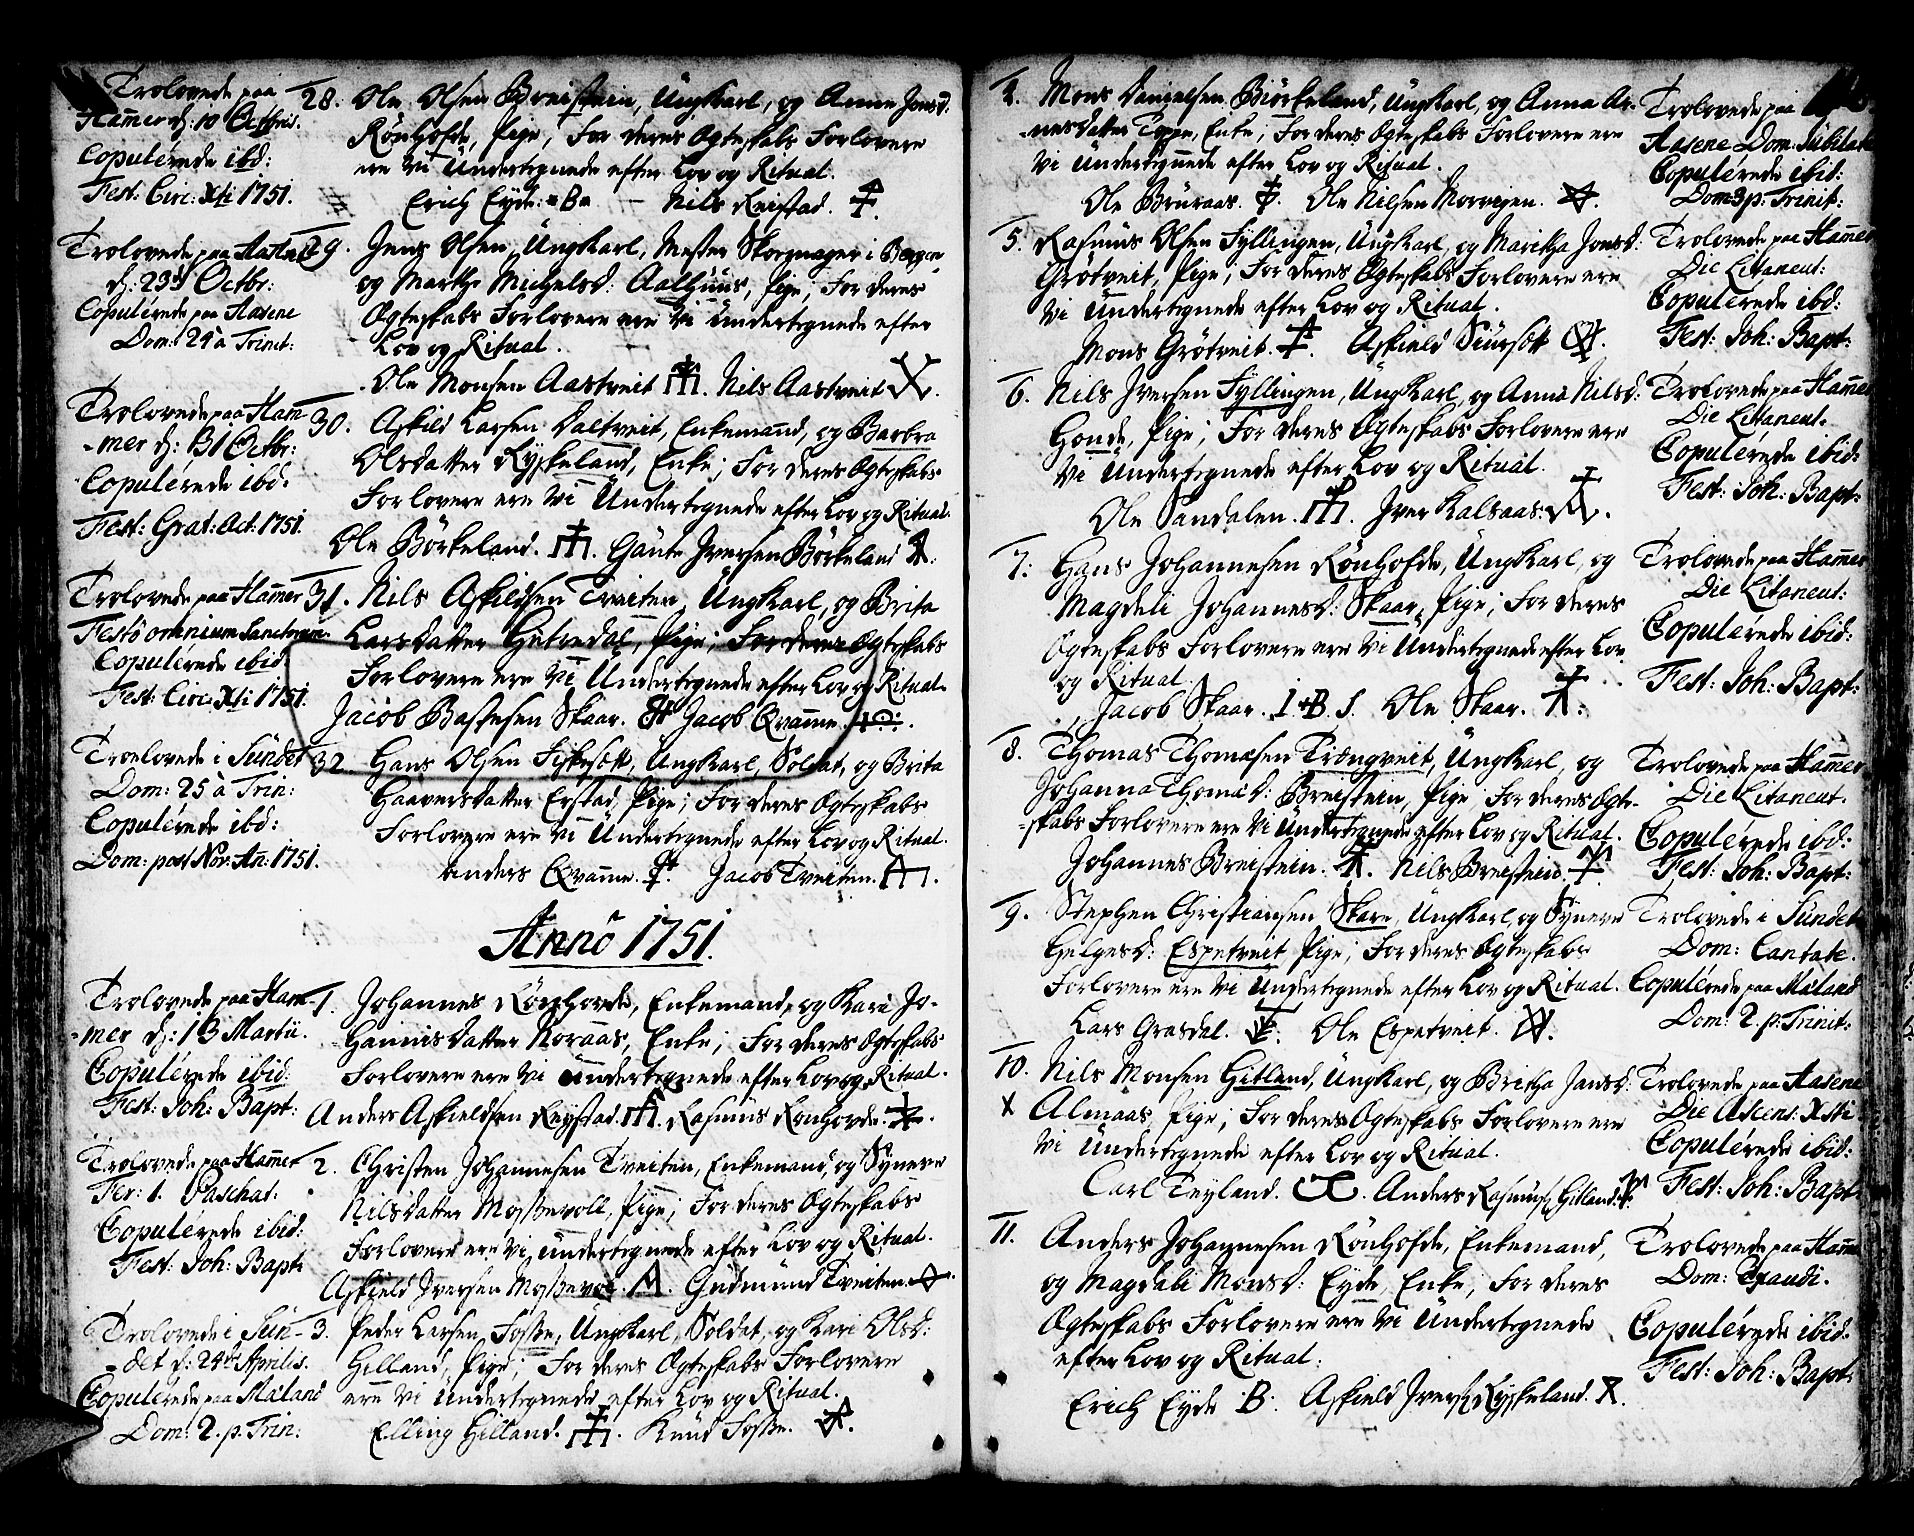 Trolovede paa
Ham̅er d: 10 Octbris.
Copulerede ibd:
Fest: Circ: Xti 1751.
28. Ole Olsen Breistein, Ungkarl, og Anne Jonsd.
Rönhofde, Pige; For deres Ægteskabs Forlovere
ere Vi Undertegnede efter Lov og Ritual.
Erich Eyde: B Nils Reistad.
Trolovede paa Hasene
d: 23de Octbr:
Copulerede paa Aasene
Dom: 25 à Trinit:
29. Jens Olsen, Ungkarl, Mester Skoemager i Bergen
og Marthe Michelsd: Aalhuus, Pige; For deres
Ægteskabs Forlovere ere Vi Undertegnede efter
Lov og Ritual.
Ole Monsen Aastveit. Nils Aastveit
Trolovede paa Ham-
-mer d: 31 Octbr:
Copulerede ibd.
Fest: Grat: Act: 1751.
30. Askild Larsen Daltveit, Enkemand, og Barbra
Olsdatter Ryskeland, Enke; For deres Ægteskabs
Forlovere ere Vi Undertegnede efter Lov og Ritual.
Ole Börkeland. Gaute Iversen Börkeland
Trolovede paa Ham̅er
Festo omnium Sanctorum
Copulerede ibid.
Fest: Circ: Xti 1751.
31. Nils Askildsen Tveiten, Ungkarl, og Brita
Larsdatter Hetredal, Pige; For deres Ægteskabs
Forlovere ere Vi Undertegnede efter Lov og Ritual.
Jacob Bastesen Skaar. Jacob Qvam̅e.
Troelovede i Sundet
Dom: 25 à Trin:
Copulerede ibd:
Dom: post Nov. An: 1751.
32. Hans Olsen Fiskesæt, Ungkarl, Soldat, og Brita
Haaversdatter Erstad, Pige; For deres Ægteskabs
Forlovere ere Vi Undertegnede efter Lov og Ritual.
Anders Qvam̅e. Jacob Tveiten.
Anno 1751.
Trolovede paa Ham-
-mer d: 13 Martii.
Copulerede ibid:
Fest: Joh: Bapt:
1. Johannes Rönhovde, Enkemand, og Kari Jo-
hannisdatter Noraas, Enke; For deres Ægteskabs
Forlovere ere Vi Undertegnede efter Lov og Ritual.
Anders Askieldsen Reystad. Rasmus Ronhovde.
Trolovede paa Ham̅er
Fer: 1. Paschat:
Copulerede ibid:
Fest: Joh: Bapt:
2. Christen Johannesen Tveiten, Enkemand, og Synneve
Nilsdatter Mossevoll, Pige; For deres Ægteskabs
Forlovere ere Vi undertegnede efter Lov og Ritual.
Askield Iversen Mossevol. Gudmund Tveiten.
Trolovede i Sun-
-det d: 24de Aprilis.
Copulerede paa Mæland
Dom: 2. p. Trin:
3. Peder Larsen Fosse, Ungkarl, Soldat, og Kari Olsd:
Hilland, Pige; For deres Ægteskabs Forlovere
ere Vi Undertegnede efter Lov og Ritual.
Elling Hilland. Knud Fosse.
4. Mons Danielsen Biörkeland, Ungkarl, og Anna Ar-
-nesdatter Toppe, Enke; For deres Ægteskabs Forlovere ere
Vi Undertegnede efter Lov og Ritual.
Ole Bruraas. Ole Nilsen Morvigen.
Trolovede paa
Aasene Dom: Jubilate
Copulerede ibid:
Dom 3 p: Trinit:
5. Rasmus Olsen Fyllingen, Ungkarl, og Maritha Jonsd:
Grötveit, Pige; For deres Ægteskabs Forlovere ere
Vi Undertegnede efter Lov og Ritual.
Mons Grötveit. Askield Siursæt
Trolovede paa Ham̅er
Die Litaneut:
Copulerede ibd:
Fest: Joh: Bapt:
6. Nils Iversen Fyllingen, Ungkarl, og Anna Nilsd:
Honde, Pige; For deres Ægteskabs Forlovere ere
Vi Undertegnede efter Lov og Ritual.
Ole Sandalen. Iver Kalsaas.
Trolovede paa Ham̅er
Die Litaneut.
Copulerede ibid:
Fest: Joh: Bapt:
7. Hans Johannesen Rönhofde, Ungkarl, og
Magdeli Johannesd: Skaar, Pige; For deres
Ægteskabs Forlovere ere Vi Undertegnede efter Lov
og Ritual.
Jacob Skaar. I.B.S. Ole Skaar.
Trolovede paa Ham̅er
Die Litaneut:
Copulerede ibid:
Fest: Joh: Bapt:
8. Thomas Thomæsen Trængveit, Ungkarl, og
Johanna Thomæd: Breistein, Pige; For deres Ægte-
-skabs Forlovere ere Vi Undertegnede efter Lov og Ritual.
Johannes Breistein. Nils Breistein.
Trolovede paa Ham̅er
Die Litaneut.
Copulerede ibd:
Fest: Joh: Bapt:
9. Stephen Christiansen Skare, Ungkarl, og Synneve
Helgesd: Espetveit Pige; For deres Ægteskabs
Forlovere ere Vi Undertegnede efter Lov og Ritual.
Lars Grasdal. Ole Espetveit.
Trolovede i Sundet
Dom: Cantate.
Copulerede paa Mæland
Dom: 2. p: Trinit:
10. Nils Monsen Hitland, Ungkarl, og Britha Jansd:
x Almaas, Pige; For deres Ægteskabs Forlovere ere
Vi Undertegnede efter Lov og Ritual.
Carl Teyland. Anders Rasmus: Hitland.
Trolovede paa Aasene
Die Ascens: Xsti
Copulerede ibid:
Fest: Joh: Bapt:
11. Anders Johannesen Rönhofde, Enkemand,
og Magdeli Monsd: Eyde, Enke; For deres
Ægteskabs Forlovere ere Vi Undertegnede
efter Lov og Ritual:
Erich Eyde B. Askield Ivers: Ryskeland.
Trolovede paa Ham̅er
Dom: Exaudi.
Copulerede ibid.
Fest: Joh: Bapt: